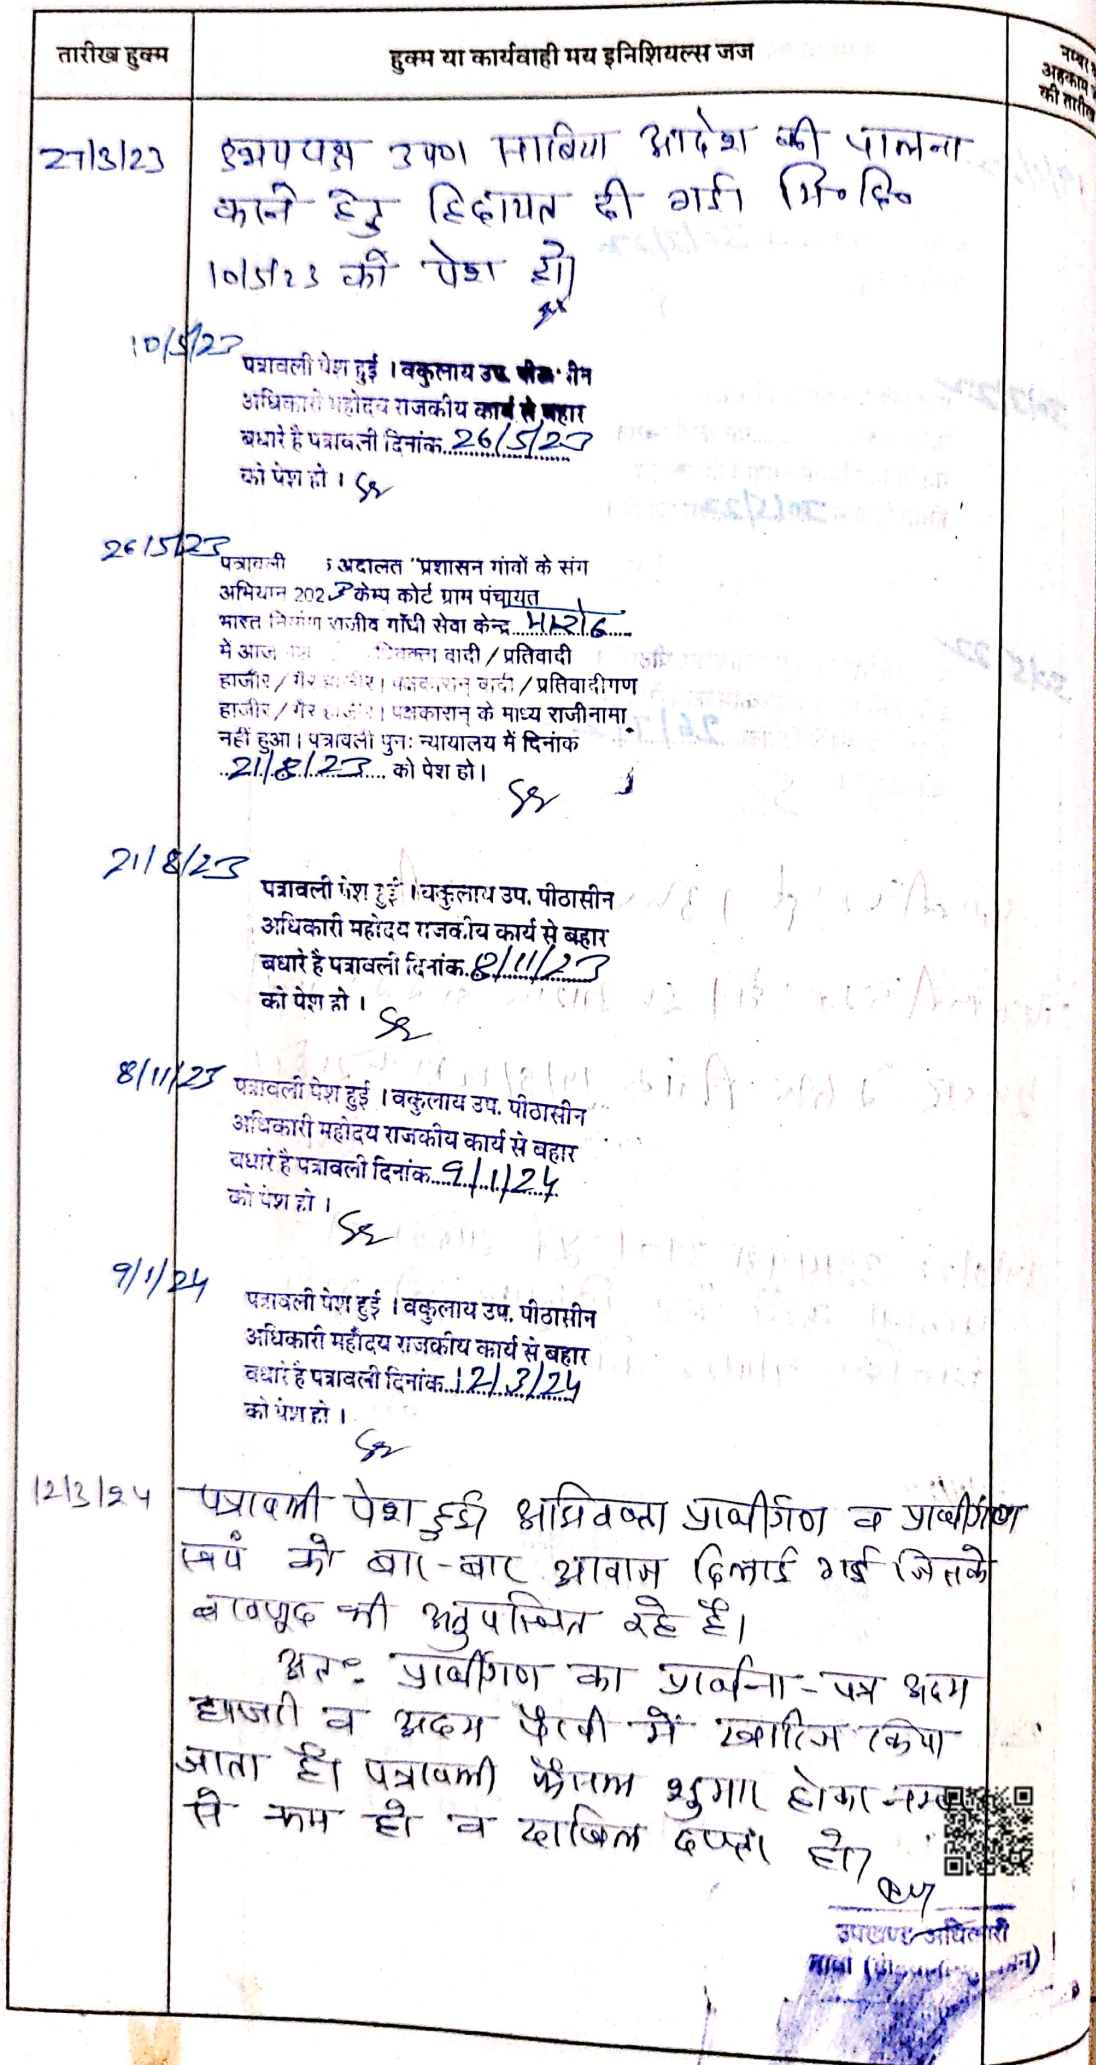 तारीख हुक्म
हुक्म या कार्यवाही मय इनिशियल्स जज
नम्बर
अहकाम
की तारीख
27/3/23
उभयपक्ष उप० साबिका आदेश की पालना
करने हेतु हिदायत दी गई। मि०दि०
10/5/23 को पेश हो।
10/5/23
पत्रावली पेश हुई । वकुलाय उप.
अधिकारी महोदय राजकीय कार्य से बहार
बधारे है पत्रावली दिनांक..26/5/23
को पेश हो ।
26/5/23
पत्रावली अदालत "प्रशासन गांवों के संग
अभियान 2023 केम्प कोर्ट ग्राम पंचायत
भारत निर्माण राजीव गाँधी सेवा केन्द्र
में आज वादी / प्रतिवादी
हाजीर / गैर हाजीर। पक्षकारान् वादी / प्रतिवादीगण
हाजीर / गैर हाजीर। पक्षकारान् के माध्य राजीनामा
नहीं हुआ। पत्रावली पुनः न्यायालय में दिनांक
..21/8/23.... को पेश हो।
21/8/23
पत्रावली पेश हुई । वकुलाय उप. पीठासीन
अधिकारी महोदय राजकीय कार्य से बहार
बधारे है पत्रावली दिनांक..8/11/23
को पेश हो ।
8/11/23
पत्रावली पेश हुई । वकुलाय उप. पीठासीन
अधिकारी महोदय राजकीय कार्य से बहार
बधारे है पत्रावली दिनांक..9/1/24
को पेश हो ।
9/1/24
पत्रावली पेश हुई । वकुलाय उप. पीठासीन
अधिकारी महोदय राजकीय कार्य से बहार
बधारे है पत्रावली दिनांक..12/3/24
को पेश हो ।
12/3/24
पत्रावली पेश हुई। अधिवक्ता प्रार्थीगण व प्रार्थीगण
स्वयं को बार-बार आवाज दिलाई गई जिसके
बावजूद भी अनुपस्थित रहे है।
अतः प्रार्थीगण का प्रार्थना-पत्र अदम
हाजरी व अदम पैरवी में खारिज किया
जाता है। पत्रावली फैसल शुमार होकर नम्बर
से कम हो व दाखिल दफ्तर हो।
उपखण्ड अधिकारी